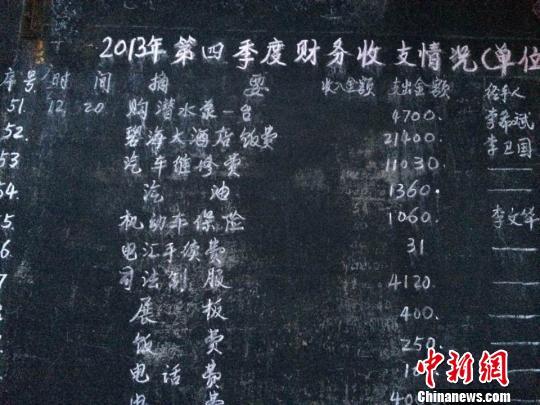 2013年第四季度财务收支情况(单位
序号 时间 摘要 收入金额 支出金额 经手人
51 12 20 购潜水泵一台 4700. 李希斌
52. 碧海大酒店饭费 21400. 李卫国
53 汽车维修费 11030. —
54. 汽油 1360. —
5. 机动车保险 1060. 李文华
6. 电汇手续费 31 —
7 司法制服 4120. —
8 展板 400. —
饭费 250.
电话费
电费
中新网